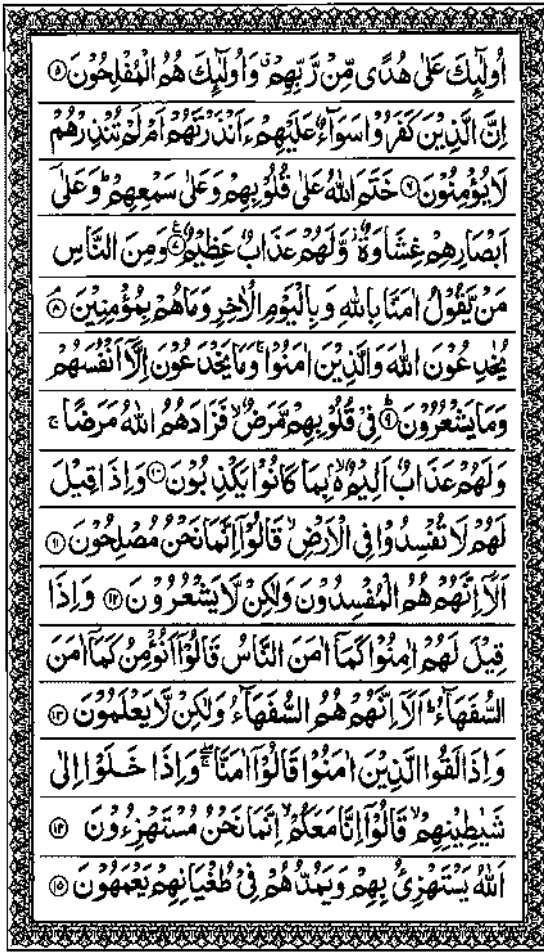 اُولٰٓئِكَ عَلٰى هُدًى مِّنْ رَّبِّهِمْ ۙ وَاُولٰٓئِكَ هُمُ الْمُفْلِحُوْنَ ۝۵
اِنَّ الَّذِيْنَ كَفَرُوْا سَوَآءٌ عَلَيْهِمْ ءَاَنْذَرْتَهُمْ اَمْ لَمْ تُنْذِرْهُمْ
لَا يُؤْمِنُوْنَ ۝۶ خَتَمَ اللّٰهُ عَلٰى قُلُوْبِهِمْ وَعَلٰى سَمْعِهِمْ ؕ وَعَلٰٓى
اَبْصَارِهِمْ غِشَاوَةٌ ۙ وَّلَهُمْ عَذَابٌ عَظِيْمٌ ۝۷ وَمِنَ النَّاسِ
مَنْ يَّقُوْلُ اٰمَنَّا بِاللّٰهِ وَبِالْيَوْمِ الْاٰخِرِ وَمَا هُمْ بِمُؤْمِنِيْنَ ۝۸
يُخٰدِعُوْنَ اللّٰهَ وَالَّذِيْنَ اٰمَنُوْا ۚ وَمَا يَخْدَعُوْنَ اِلَّآ اَنْفُسَهُمْ
وَمَا يَشْعُرُوْنَ ۝۹ فِيْ قُلُوْبِهِمْ مَّرَضٌ ۙ فَزَادَهُمُ اللّٰهُ مَرَضًا ۚ
وَلَهُمْ عَذَابٌ اَلِيْمٌۢ ۙ بِمَا كَانُوْا يَكْذِبُوْنَ ۝۱۰ وَاِذَا قِيْلَ
لَهُمْ لَا تُفْسِدُوْا فِى الْاَرْضِ ۙ قَالُوْٓا اِنَّمَا نَحْنُ مُصْلِحُوْنَ ۝۱۱
اَلَآ اِنَّهُمْ هُمُ الْمُفْسِدُوْنَ وَلٰكِنْ لَّا يَشْعُرُوْنَ ۝۱۲ وَاِذَا
قِيْلَ لَهُمْ اٰمِنُوْا كَمَآ اٰمَنَ النَّاسُ قَالُوْٓا اَنُؤْمِنُ كَمَآ اٰمَنَ
السُّفَهَآءُ ؕ اَلَآ اِنَّهُمْ هُمُ السُّفَهَآءُ وَلٰكِنْ لَّا يَعْلَمُوْنَ ۝۱۳
وَاِذَا لَقُوا الَّذِيْنَ اٰمَنُوْا قَالُوْٓا اٰمَنَّا ۚۖ وَاِذَا خَلَوْا اِلٰى
شَيٰطِيْنِهِمْ ۙ قَالُوْٓا اِنَّا مَعَكُمْ ۙ اِنَّمَا نَحْنُ مُسْتَهْزِءُوْنَ ۝۱۴
اَللّٰهُ يَسْتَهْزِئُ بِهِمْ وَيَمُدُّهُمْ فِيْ طُغْيَانِهِمْ يَعْمَهُوْنَ ۝۱۵